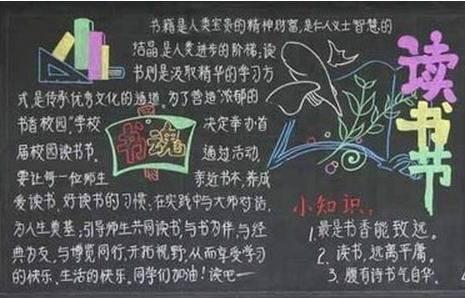 书籍是人类宝贵的精神财富,是仁人义士智慧的
结晶是人类进步的阶梯;读
书则是汲取精华的学习方
式,是传承优秀文化的通道。为了营造“浓郁的
书香校园”学校 决定举办首
届校园读书节。 通过活动,
要让每一位师生 亲近书本,养成
爱读书、好读书的习惯;在实践中与大师对话,
为人生奠基;引导师生共同读书,与书为伴,与经
典为友,与博览同行,开拓视野,从而享受学习
的快乐、生活的快乐。同学们加油!读吧——
书魂
读书节
小知识:
1.最是书香能致远。
2. 读书,远离平庸。
3. 腹有诗书气自华。